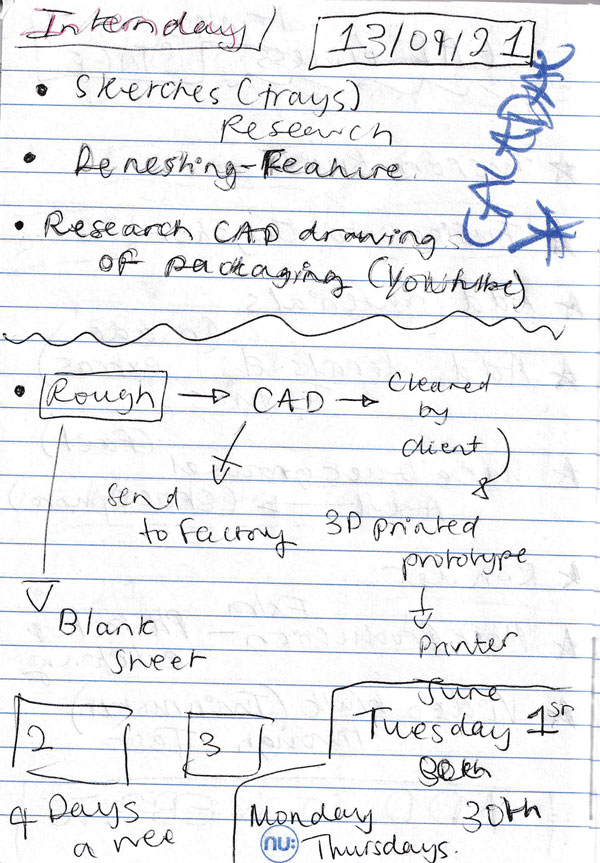 Internday
13/04/21
CALADAX
• Sketches (trays)
Research
• Reneshing - Feature.
• Research CAD drawings
of packaging (Youtube)
• Rough → CAD → Cleared
by
client
Send
to factory
3D printed
prototype
Printer
Blank
sheet
2
3
June
Tuesday 1st
30th
4 Days
a wee
Monday 30th
Thursdays.
nu: